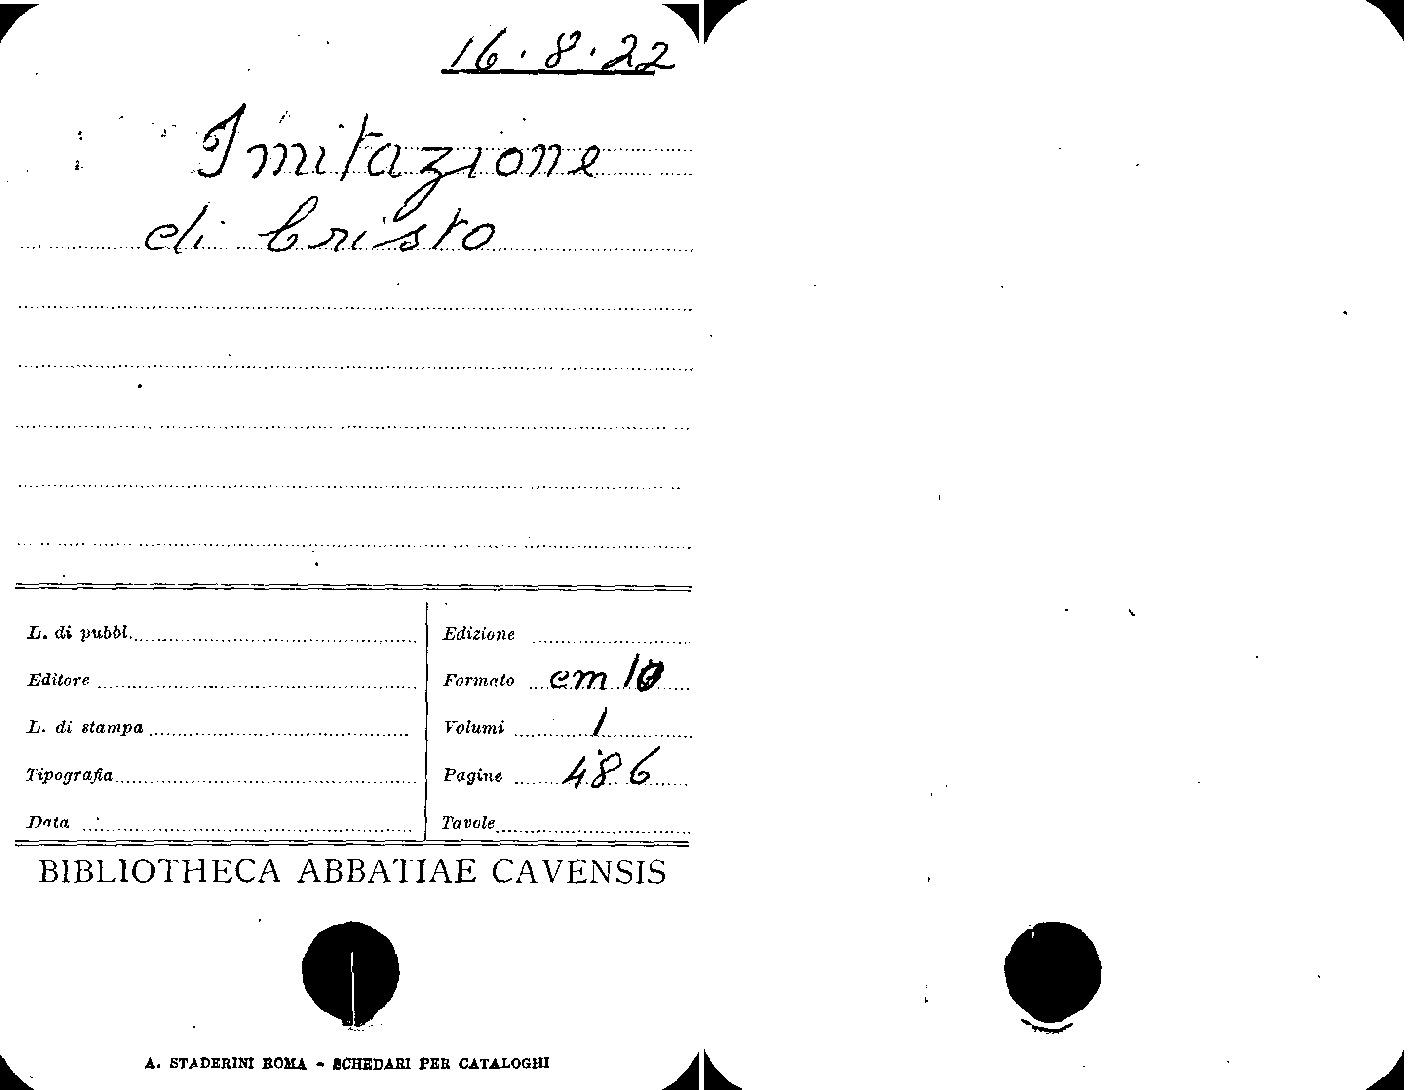 16.8.22
Imitazione
di Cristo
L. di pubbl.
Editore
L. di stampa
Tipografia
Data
Edizione
Formato cm 10
Volumi 1
Pagine 486
Tavole
BIBLIOTHECA ABBATIAE CAVENSIS
A. STADERINI ROMA - SCHEDARI PER CATALOGHI